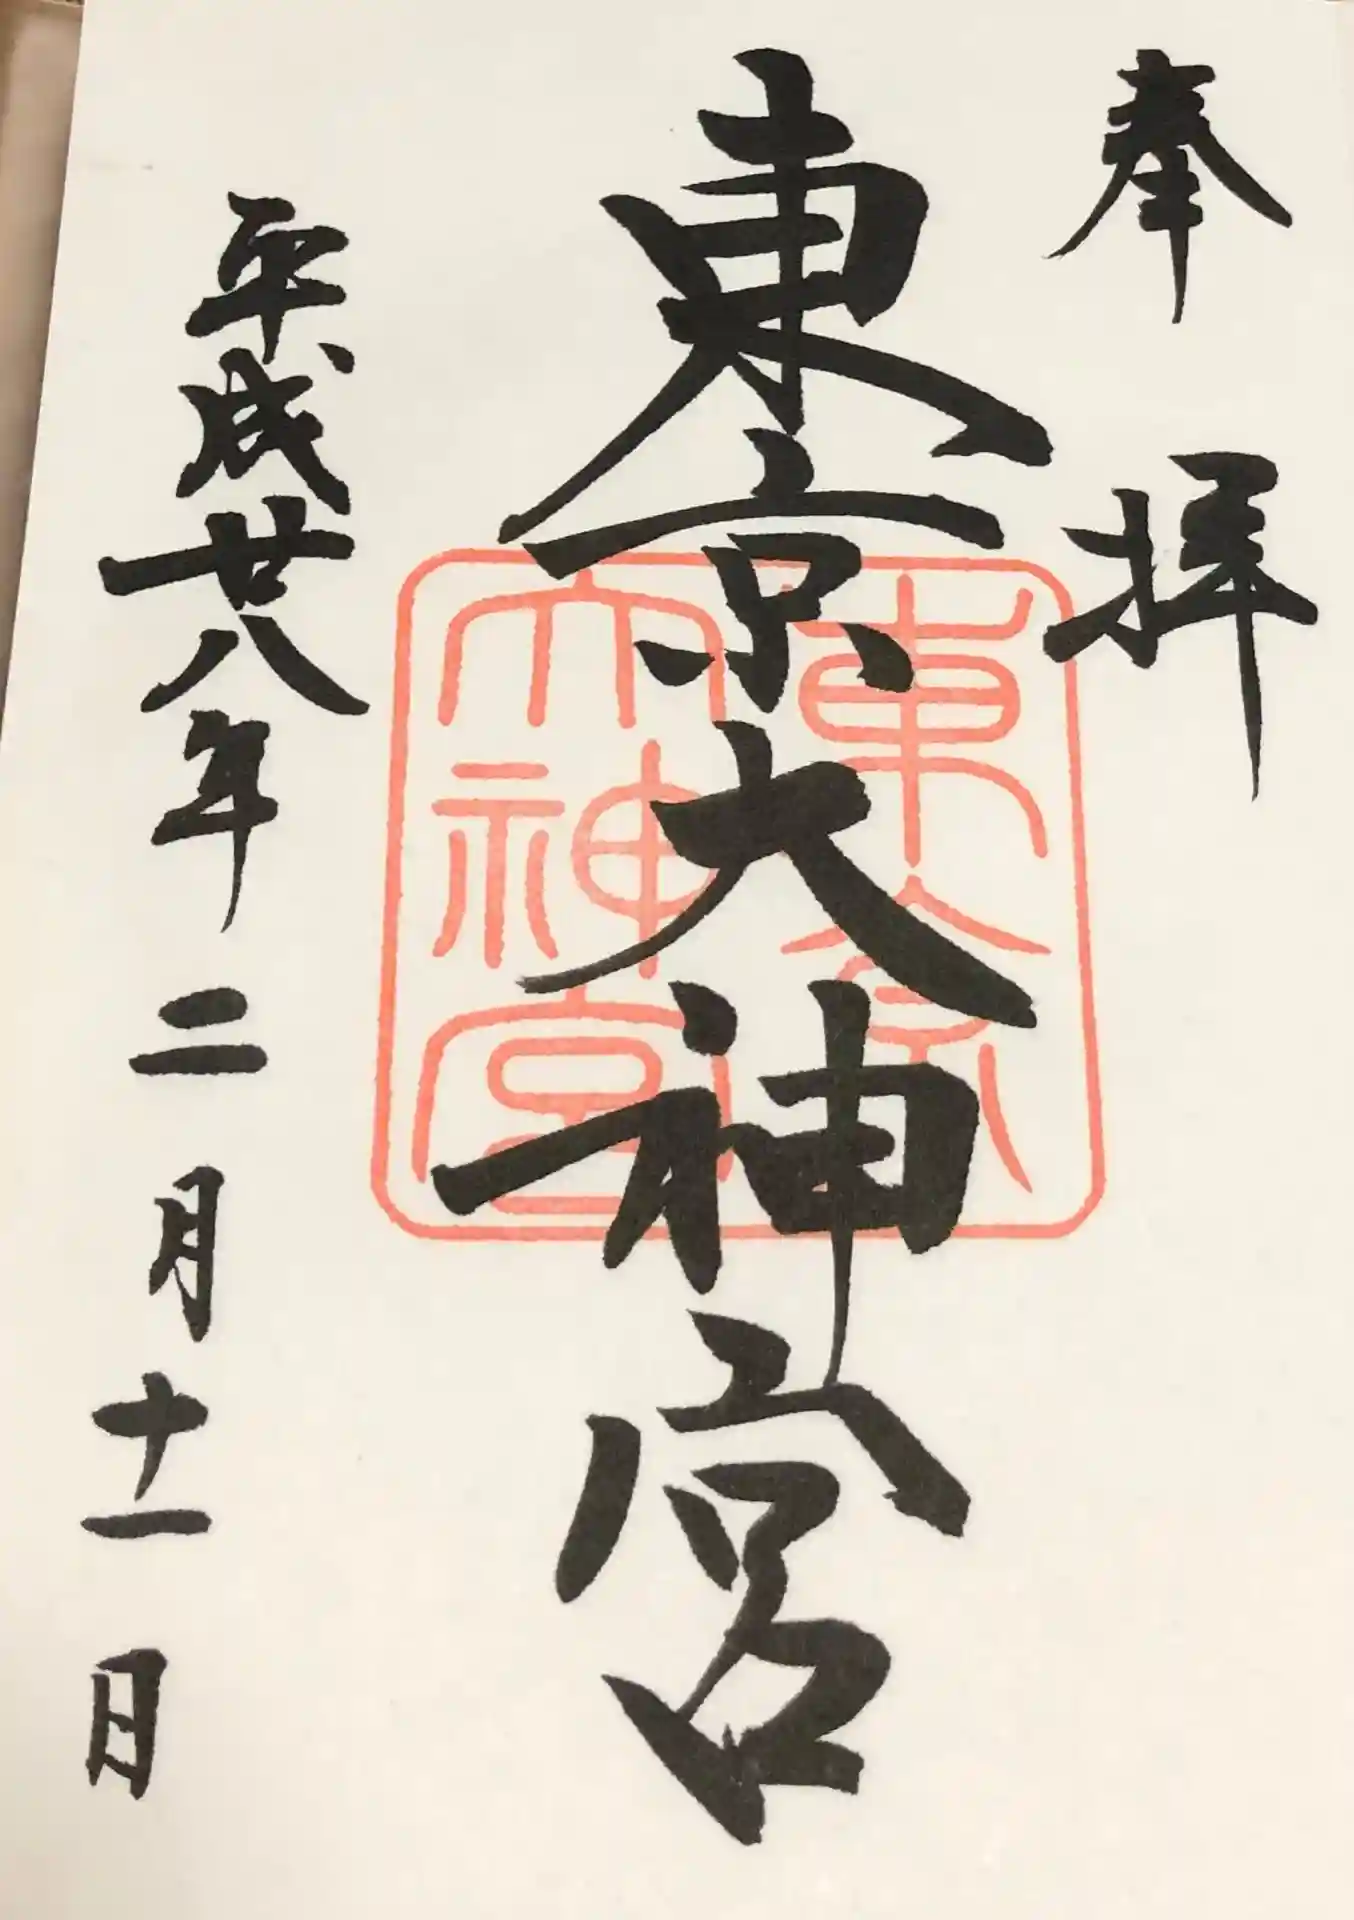 奉拝
東京大神宮
東京
大神宮
平成廿八年二月十一日